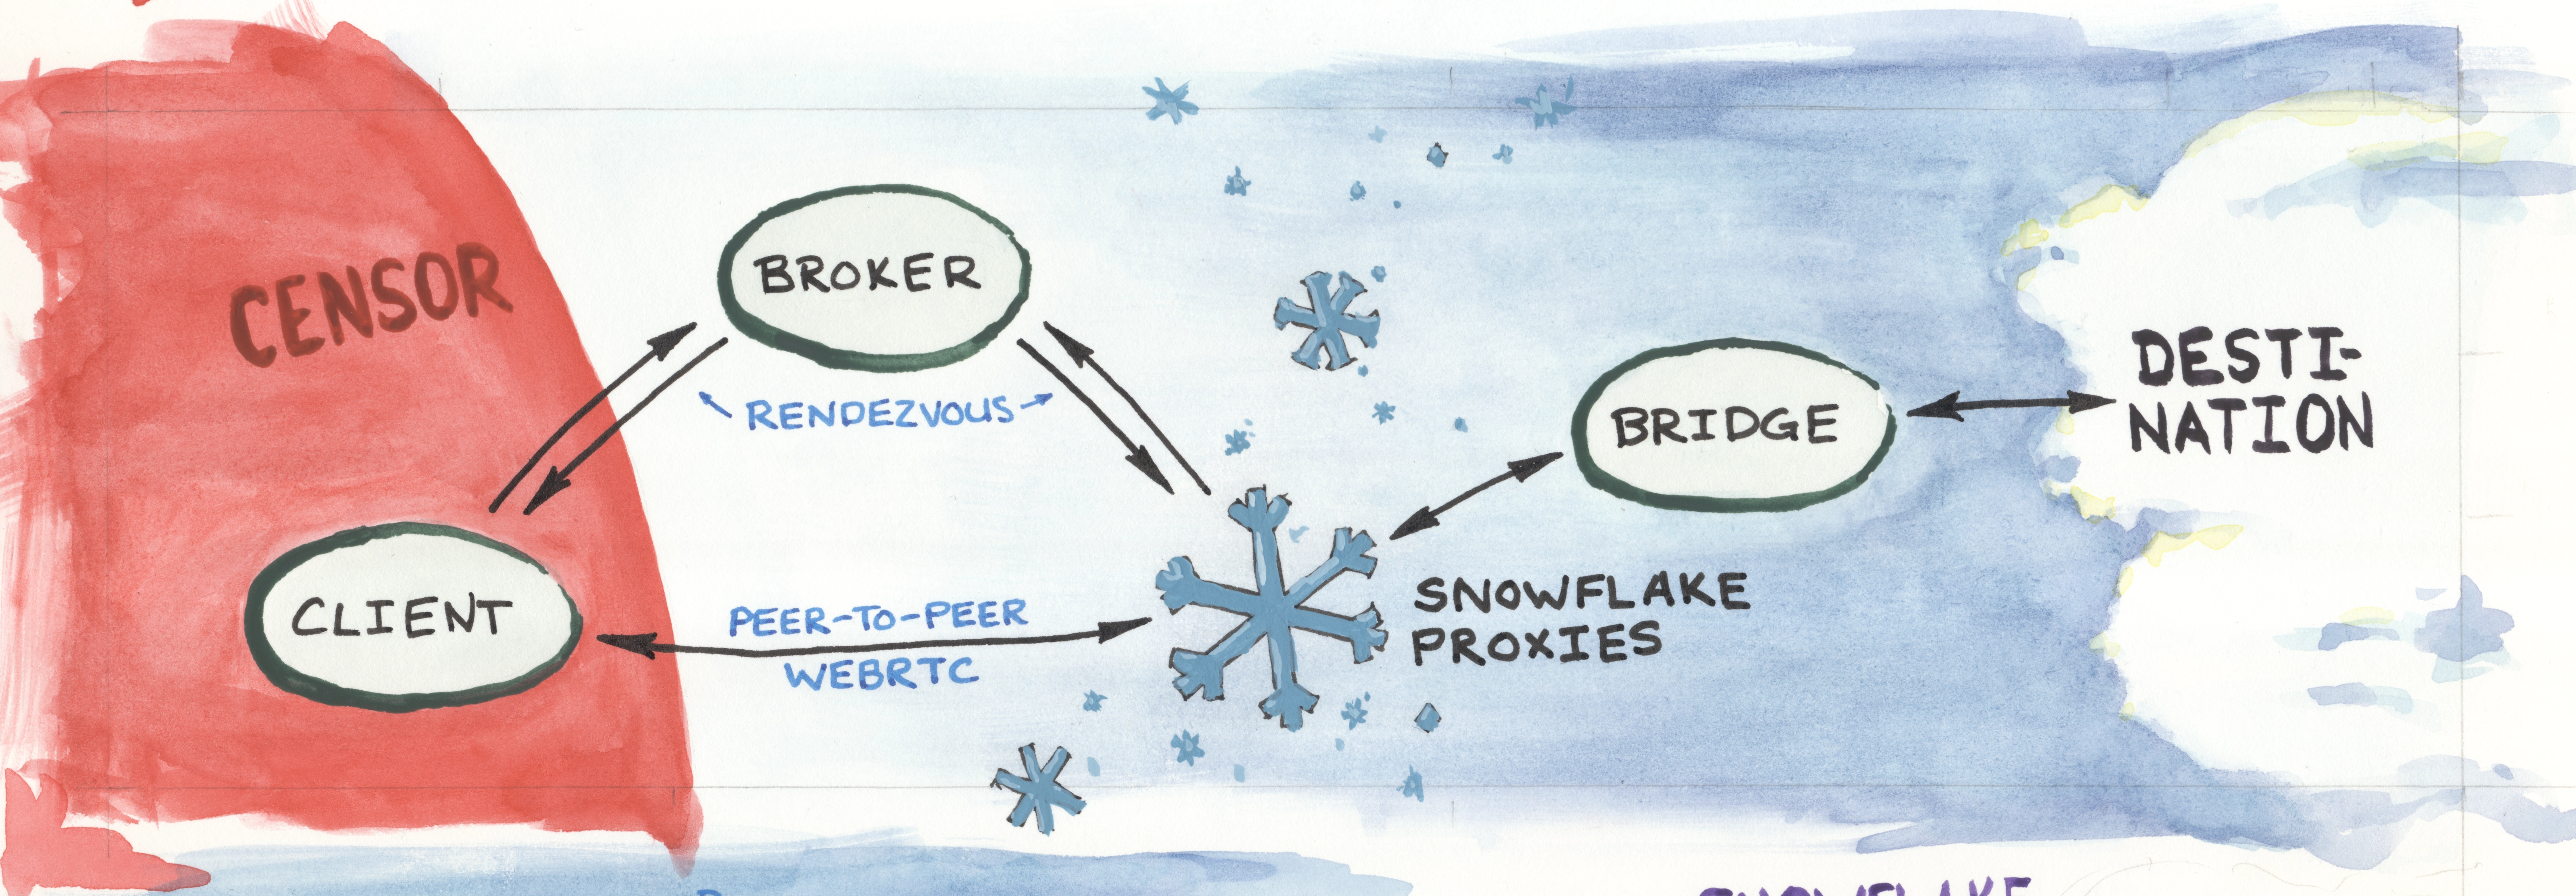 CENSOR
BROKER
RENDEZVOUS
CLIENT
PEER-TO-PEER
WEBRTC
SNOWFLAKE
PROXIES
BRIDGE
DESTI-
NATION
SNOWFLAKE